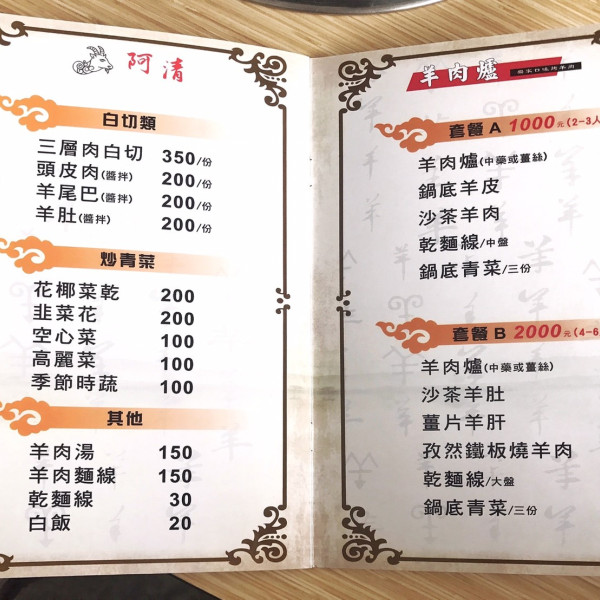 阿清
白切類
三層肉白切 350/份
頭皮肉(醬拌) 200/份
羊尾巴(醬拌) 200/份
羊肚(醬拌) 200/份
炒青菜
花椰菜乾 200
韭菜花 200
空心菜 100
高麗菜 100
季節時蔬 100
其他
羊肉湯 150
羊肉麵線 150
乾麵線 30
白飯 20
羊肉爐
套餐 A 1000元(2-3人
羊肉爐(中藥或薑絲)
鍋底羊皮
沙茶羊肉
乾麵線/中盤
鍋底青菜/三份
套餐 B 2000元(4-6
羊肉爐(中藥或薑絲)
沙茶羊肚
薑片羊肝
孜然鐵板燒羊肉
乾麵線/大盤
鍋底青菜/三份